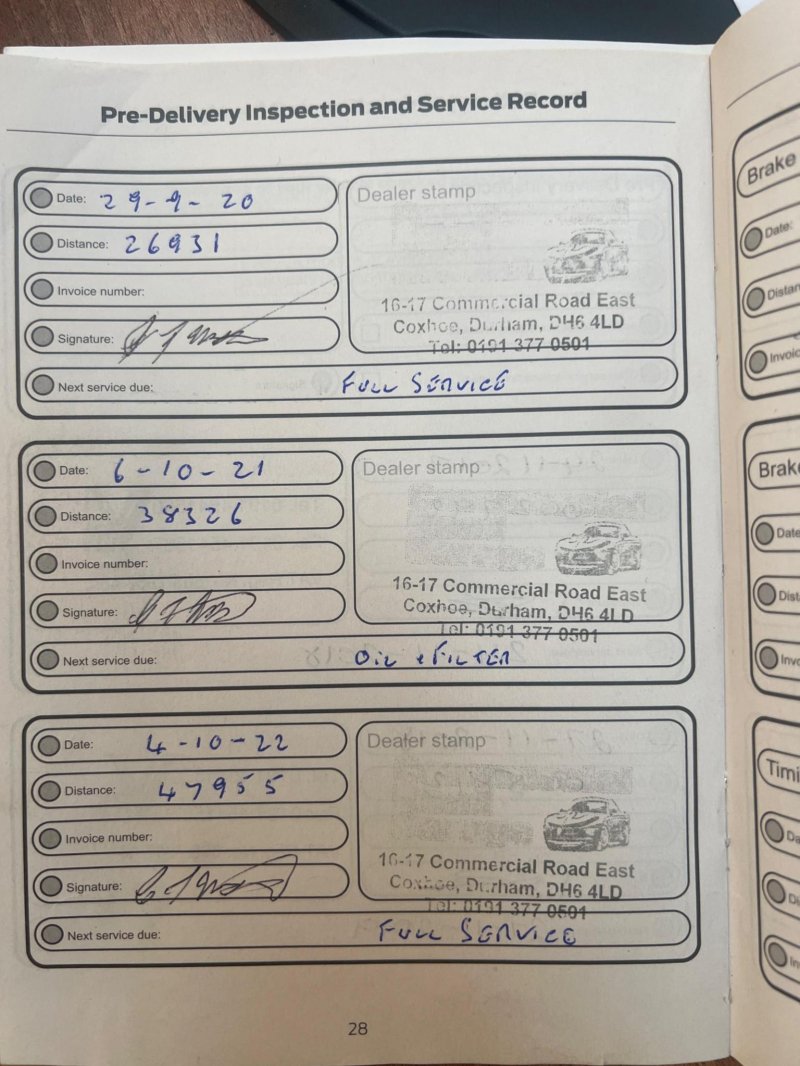 Pre-Delivery Inspection and Service Record
Date: 29-9-20
Dealer stamp
Distance: 26931
Invoice number:
16-17 Commercial Road East
Coxhoe, Durham, DH6 4LD
Signature:
Tel: 0191 377 0501
Next service due: FULL SERVICE
Date: 6-10-21
Dealer stamp
Distance: 38326
Invoice number:
16-17 Commercial Road East
Coxhoe, Durham, DH6 4LD
Signature:
Tel: 0191 377 0501
Next service due: OIL & FILTER
Date: 4-10-22
Dealer stamp
Distance: 47955
Invoice number:
16-17 Commercial Road East
Coxhoe, Durham, DH6 4LD
Signature:
Tel: 0191 377 0501
Next service due: FULL SERVICE
28
Brake
Date:
Distan
Invoic
Brake
Date
Dist
Invo
Timi
Da
Di
In